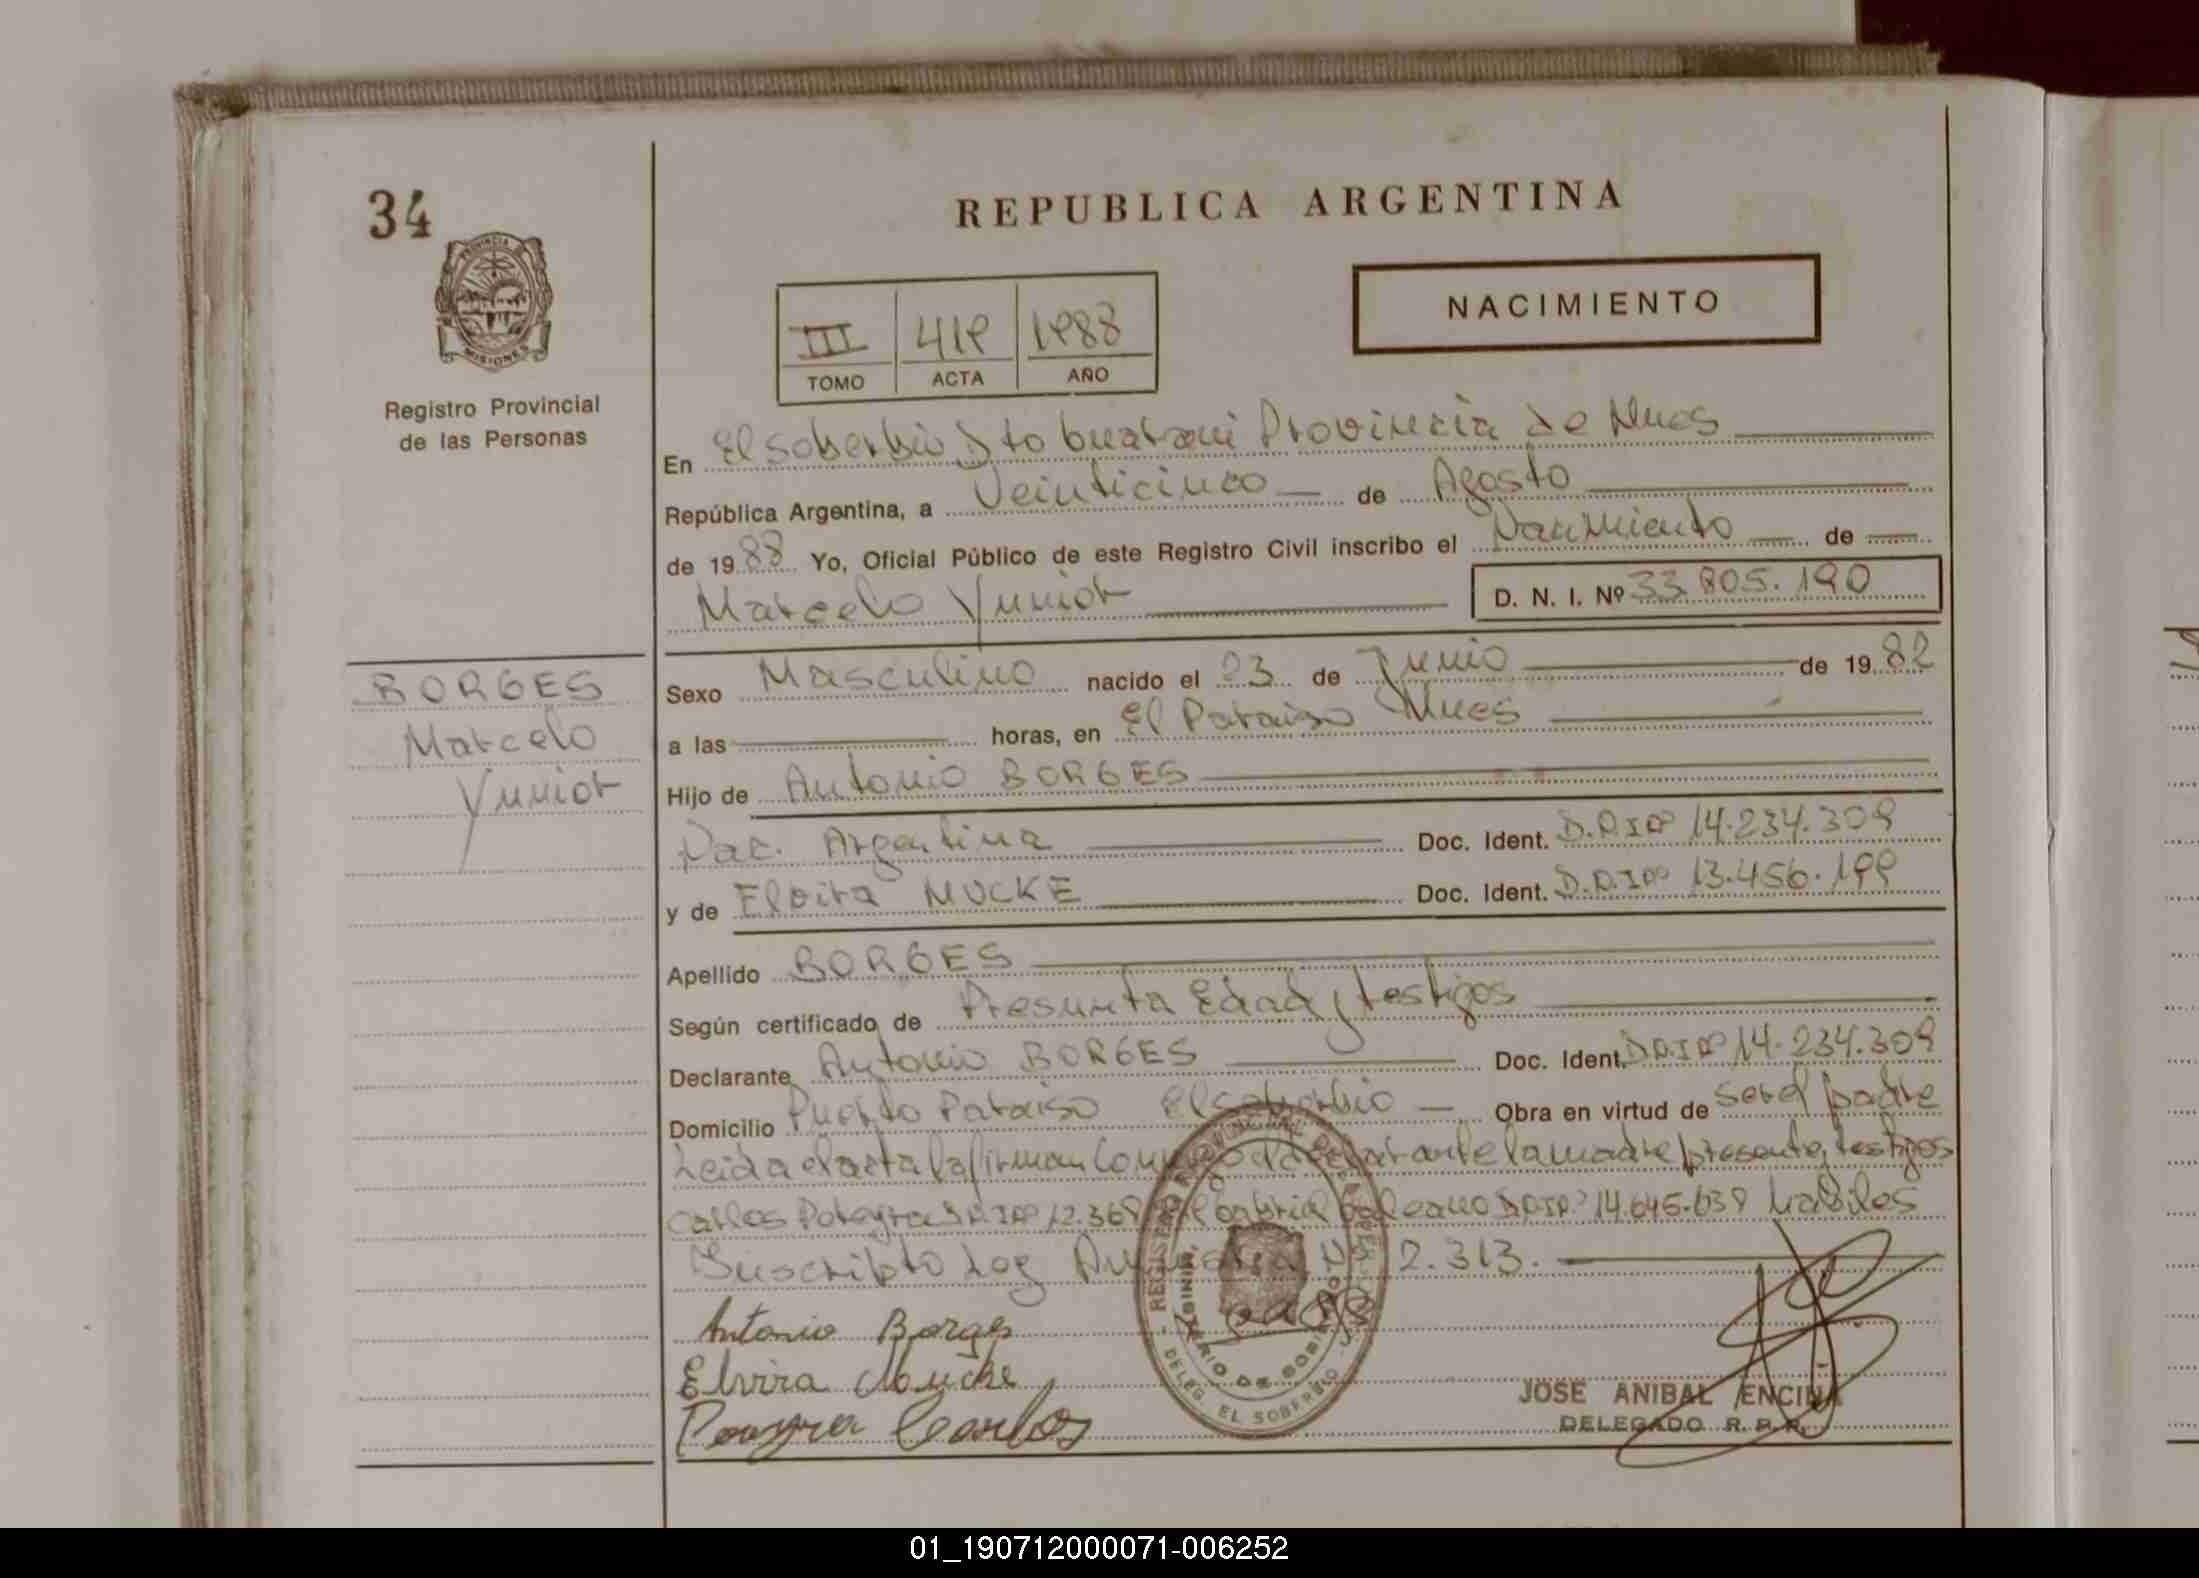 34
REPUBLICA ARGENTINA
PROVINCIA DE
MISIONES
Registro Provincial
de las Personas
NACIMIENTO
III 419 1988
TOMO ACTA AÑO
En El soberbio Dto Guarani Provincia de Mnes
República Argentina, a Veinticinco de Agosto
de 1988 Yo, Oficial Público de este Registro Civil inscribo el Nacimiento de
Marcelo Yunior D. N. I. Nº 33.805.190
BORGES
Marcelo
Yunior
Sexo Masculino nacido el 23 de Junio de 1982
a las horas, en El Paraiso Mnes
Hijo de Antonio BORGES
Nac. Argentina Doc. Ident. D.N.I Nº 14.234.309
y de Elvira MUCKE Doc. Ident. D.N.I Nº 13.456.199
Apellido BORGES
Según certificado de Presunta Edad y testigos
Declarante Antonio BORGES Doc. Ident. D.N.I Nº 14.234.309
Domicilio Puerto Paraiso El soberbio Obra en virtud de ser el padre
Leida el acta la firman Conmigo el declarante la madre presente, testigos
Carlos D.N.I Nº 12.368 Gabriel Galeano D.N.I Nº 14.645.639 habiles
Suscripto Ley Amnistia Nº 2.313.
Antonio Borges
Elvira Mucke
Carlos
DELEG. EL SOBERBIO
JOSE ANIBAL ENCINA
DELEGADO R. P. P.
01_190712000071-006252